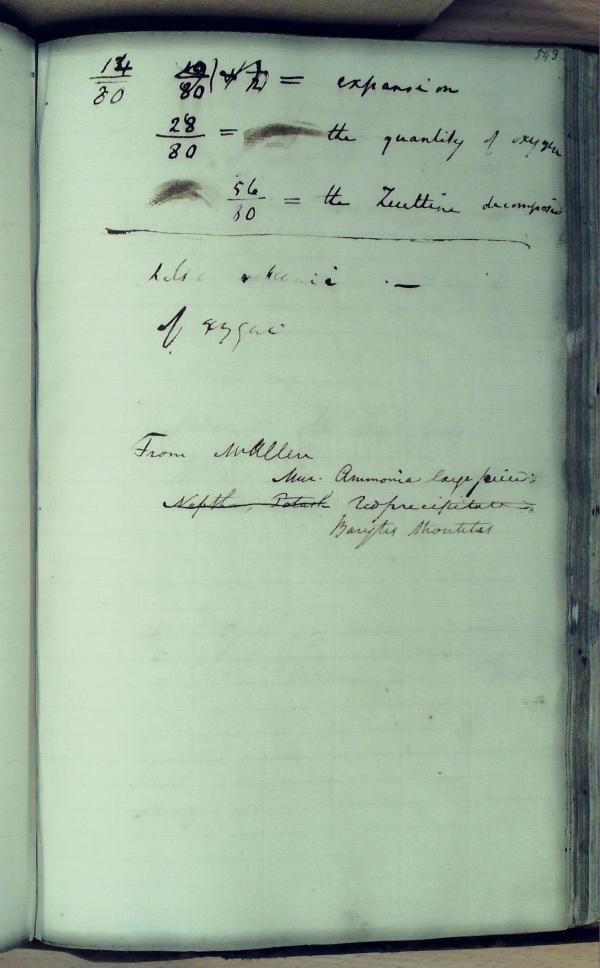 543
14/80 = expansion
28/80 = the quantity of oxygen
56/80 = the Euchlorine decompos
of oxygene
From Mr Allen
Mur. Ammonia large pieces
Naptha, Potash Red precipitate
Barytes Strontites